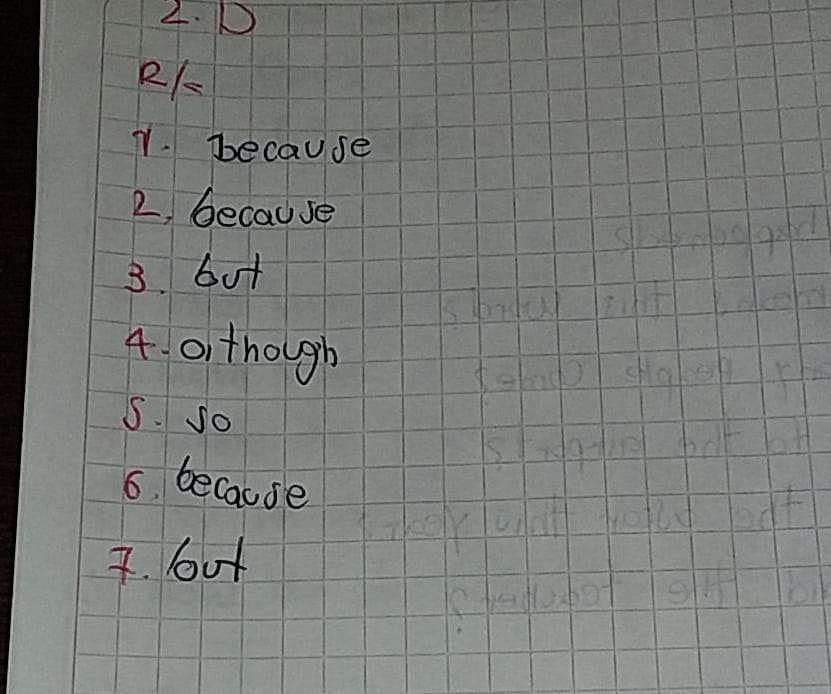 2. D
R/=
1. because
2. because
3. but
4. although
5. so
6. because
7. but